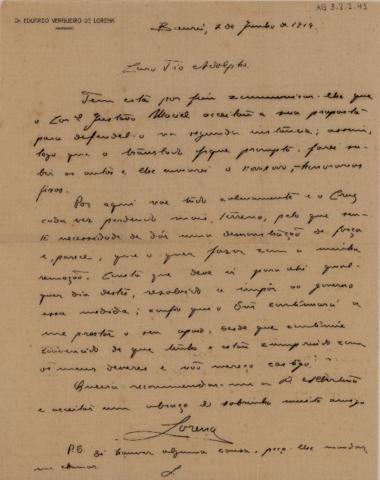 AG 3.2.2.45
DR. EDUARDO VERGUEIRO DE LORENA
ADVOGADO
Baurú, 2 de Junho de 1914.
Caro Tio Adolpho.
Tem esta por fim communicar-lhe que
o Cor.el Gustavo Maciel acceitou a sua proposta
para defendel-o na segunda instancia; assim,
logo que o translado fique prompto, farei su-
bir os autos e lhe enviarei o
Por aqui vae tudo calmamente e o Cruz
cada vez perdendo mais terreno, pelo que sen-
te necessidade de dar uma demonstração de força
e, parece, que o quer fazer com a minha
remoção. Consta que deve ir para ahi qual-
quer dia destes, resolvido a impôr ao governo
essa medida; confio que o Snr. continuará a
me prestar o seu apoio, desde que continúe
convencido de que tenho e estou cumprindo com
os meus deveres e não mereço castigo.
Queira recommendar-me a
e acceitar um abraço do sobrinho muito amigo
Lorena
P.S. Si houver alguma cousa, peço-lhe mandar
me chamar.
L.